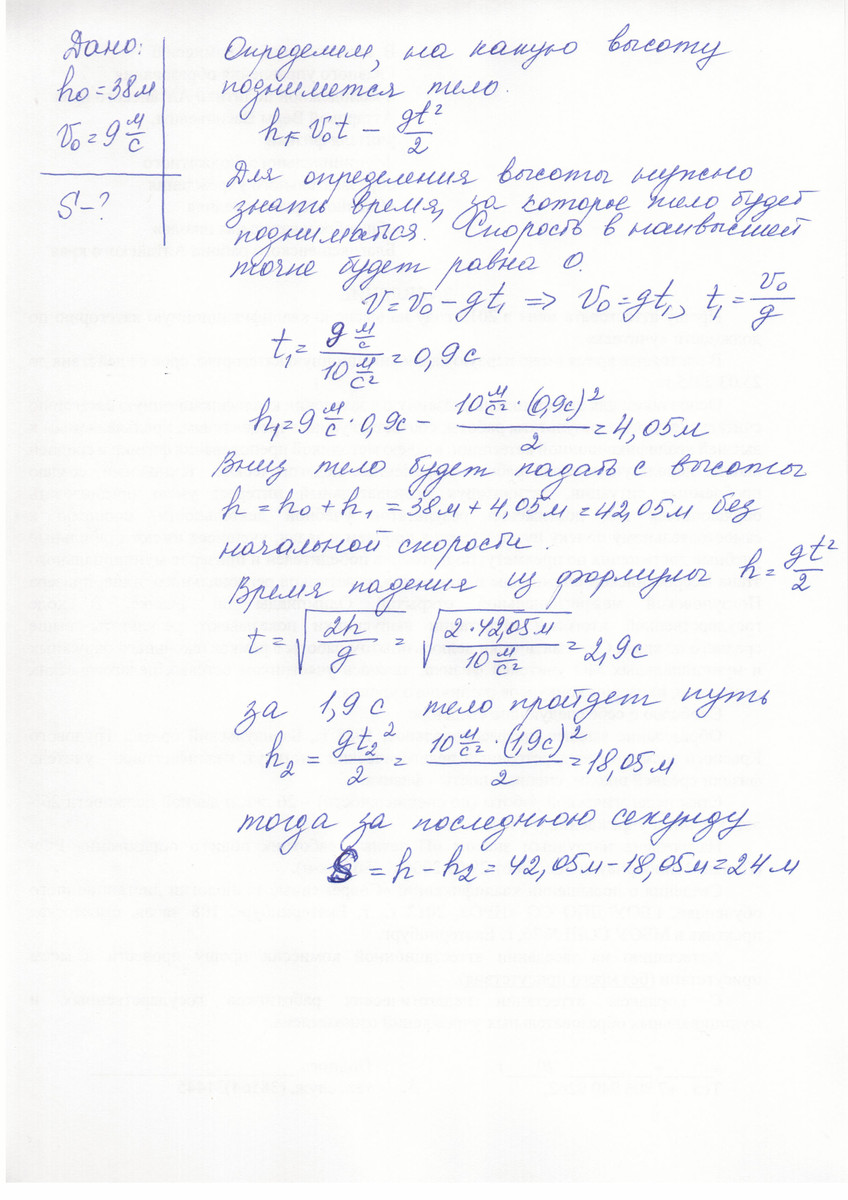 Дано:
h₀ = 38м
V₀ = 9 м/с
S - ?
Определим, на какую высоту
поднимется тело.
h₁ = V₀t - gt²/2
Для определения высоты нужно
знать время, за которое тело будет
подниматься. Скорость в наивысшей
точке будет равна 0.
V = V₀ - gt₁ => V₀ = gt₁, t₁ = V₀/g
t₁ = 9 м/с / 10 м/с² = 0,9 с
h₁ = 9 м/с · 0,9с - 10 м/с² · (0,9с)² / 2 = 4,05м
Вниз тело будет падать с высоты
h = h₀ + h₁ = 38м + 4,05м = 42,05м без
начальной скорости.
Время падения из формулы h = gt²/2
t = √(2h/g) = √(2·42,05м / 10 м/с²) = 2,9с
за 1,9 с тело пройдет путь
h₂ = gt₂²/2 = 10 м/с² · (1,9с)² / 2 = 18,05м
тогда за последнюю секунду
S = h - h₂ = 42,05м - 18,05м = 24 м